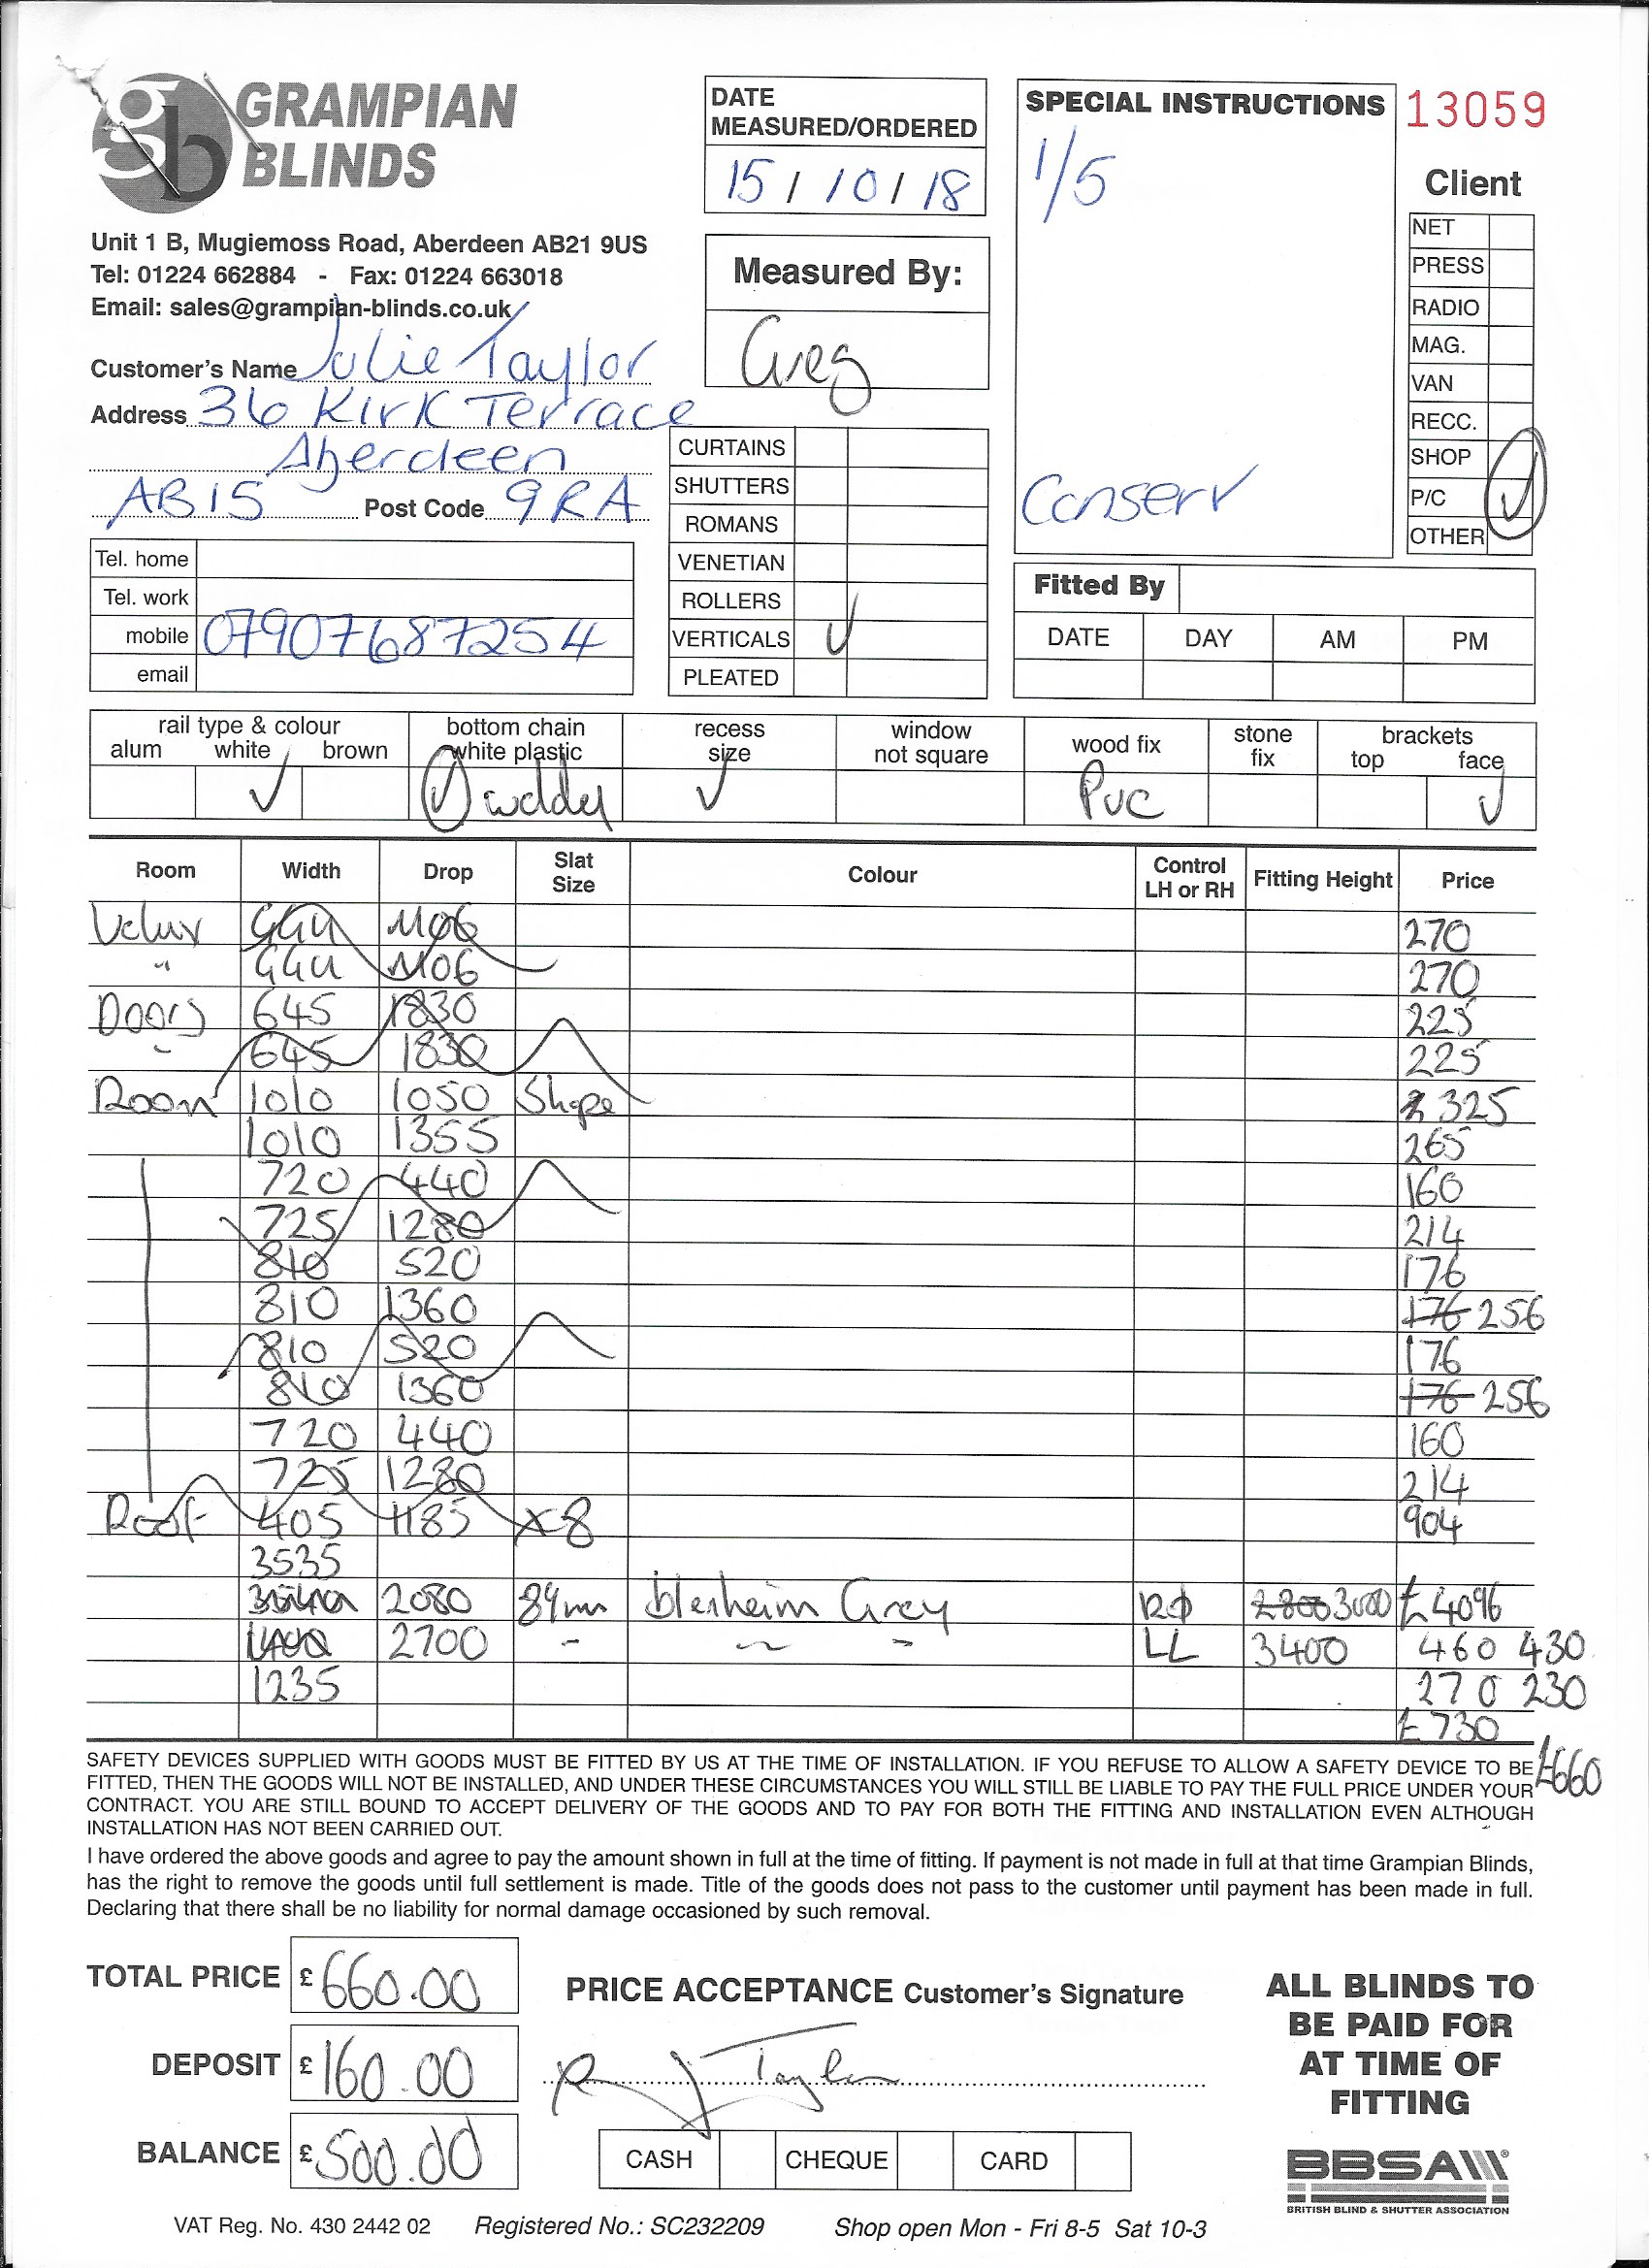 GRAMPIAN
BLINDS
gb
Unit 1 B, Mugiemoss Road, Aberdeen AB21 9US
Tel: 01224 662884 - Fax: 01224 663018
Email: sales@grampian-blinds.co.uk
Customer's Name Julie Taylor
Address 36 Kirk Terrace
Aberdeen
AB15 Post Code 9RA
Tel. home
Tel. work
mobile 07907687254
email
DATE
MEASURED/ORDERED
15 / 10 / 18
Measured By:
Greg
CURTAINS
SHUTTERS
ROMANS
VENETIAN
ROLLERS
VERTICALS ✓
PLEATED
SPECIAL INSTRUCTIONS
1/5
Conserv
13059
Client
NET
PRESS
RADIO
MAG.
VAN
RECC.
SHOP
P/C ✓
OTHER
Fitted By
DATE DAY AM PM
rail type & colour bottom chain recess window wood fix stone brackets
alum white brown white plastic size not square fix top face
✓ ✓ welded ✓ PVC ✓
Room Width Drop Slat Size Colour Control LH or RH Fitting Height Price
Velux GGU M06 270
" GGU M06 270
Doors 645 1830 225
645 1830 225
Room 1010 1050 Shape 325
1010 1355 265
720 440 160
725 1280 214
810 520 176
810 1360 176 256
810 520 176
810 1360 176 256
720 440 160
725 1280 214
Roof 405 1185 x8 904
3535
2080 89mm blenheim Grey 2800 3000 £4096
1400 2700 - ~ - LL 3400 460 430
1235 270 230
£730
£660
SAFETY DEVICES SUPPLIED WITH GOODS MUST BE FITTED BY US AT THE TIME OF INSTALLATION. IF YOU REFUSE TO ALLOW A SAFETY DEVICE TO BE
FITTED, THEN THE GOODS WILL NOT BE INSTALLED, AND UNDER THESE CIRCUMSTANCES YOU WILL STILL BE LIABLE TO PAY THE FULL PRICE UNDER YOUR
CONTRACT. YOU ARE STILL BOUND TO ACCEPT DELIVERY OF THE GOODS AND TO PAY FOR BOTH THE FITTING AND INSTALLATION EVEN ALTHOUGH
INSTALLATION HAS NOT BEEN CARRIED OUT.
I have ordered the above goods and agree to pay the amount shown in full at the time of fitting. If payment is not made in full at that time Grampian Blinds,
has the right to remove the goods until full settlement is made. Title of the goods does not pass to the customer until payment has been made in full.
Declaring that there shall be no liability for normal damage occasioned by such removal.
TOTAL PRICE £660.00
DEPOSIT £160.00
BALANCE £500.00
PRICE ACCEPTANCE Customer's Signature
Taylor
CASH CHEQUE CARD
ALL BLINDS TO
BE PAID FOR
AT TIME OF
FITTING
BBSA
BRITISH BLIND & SHUTTER ASSOCIATION
VAT Reg. No. 430 2442 02 Registered No.: SC232209 Shop open Mon - Fri 8-5 Sat 10-3